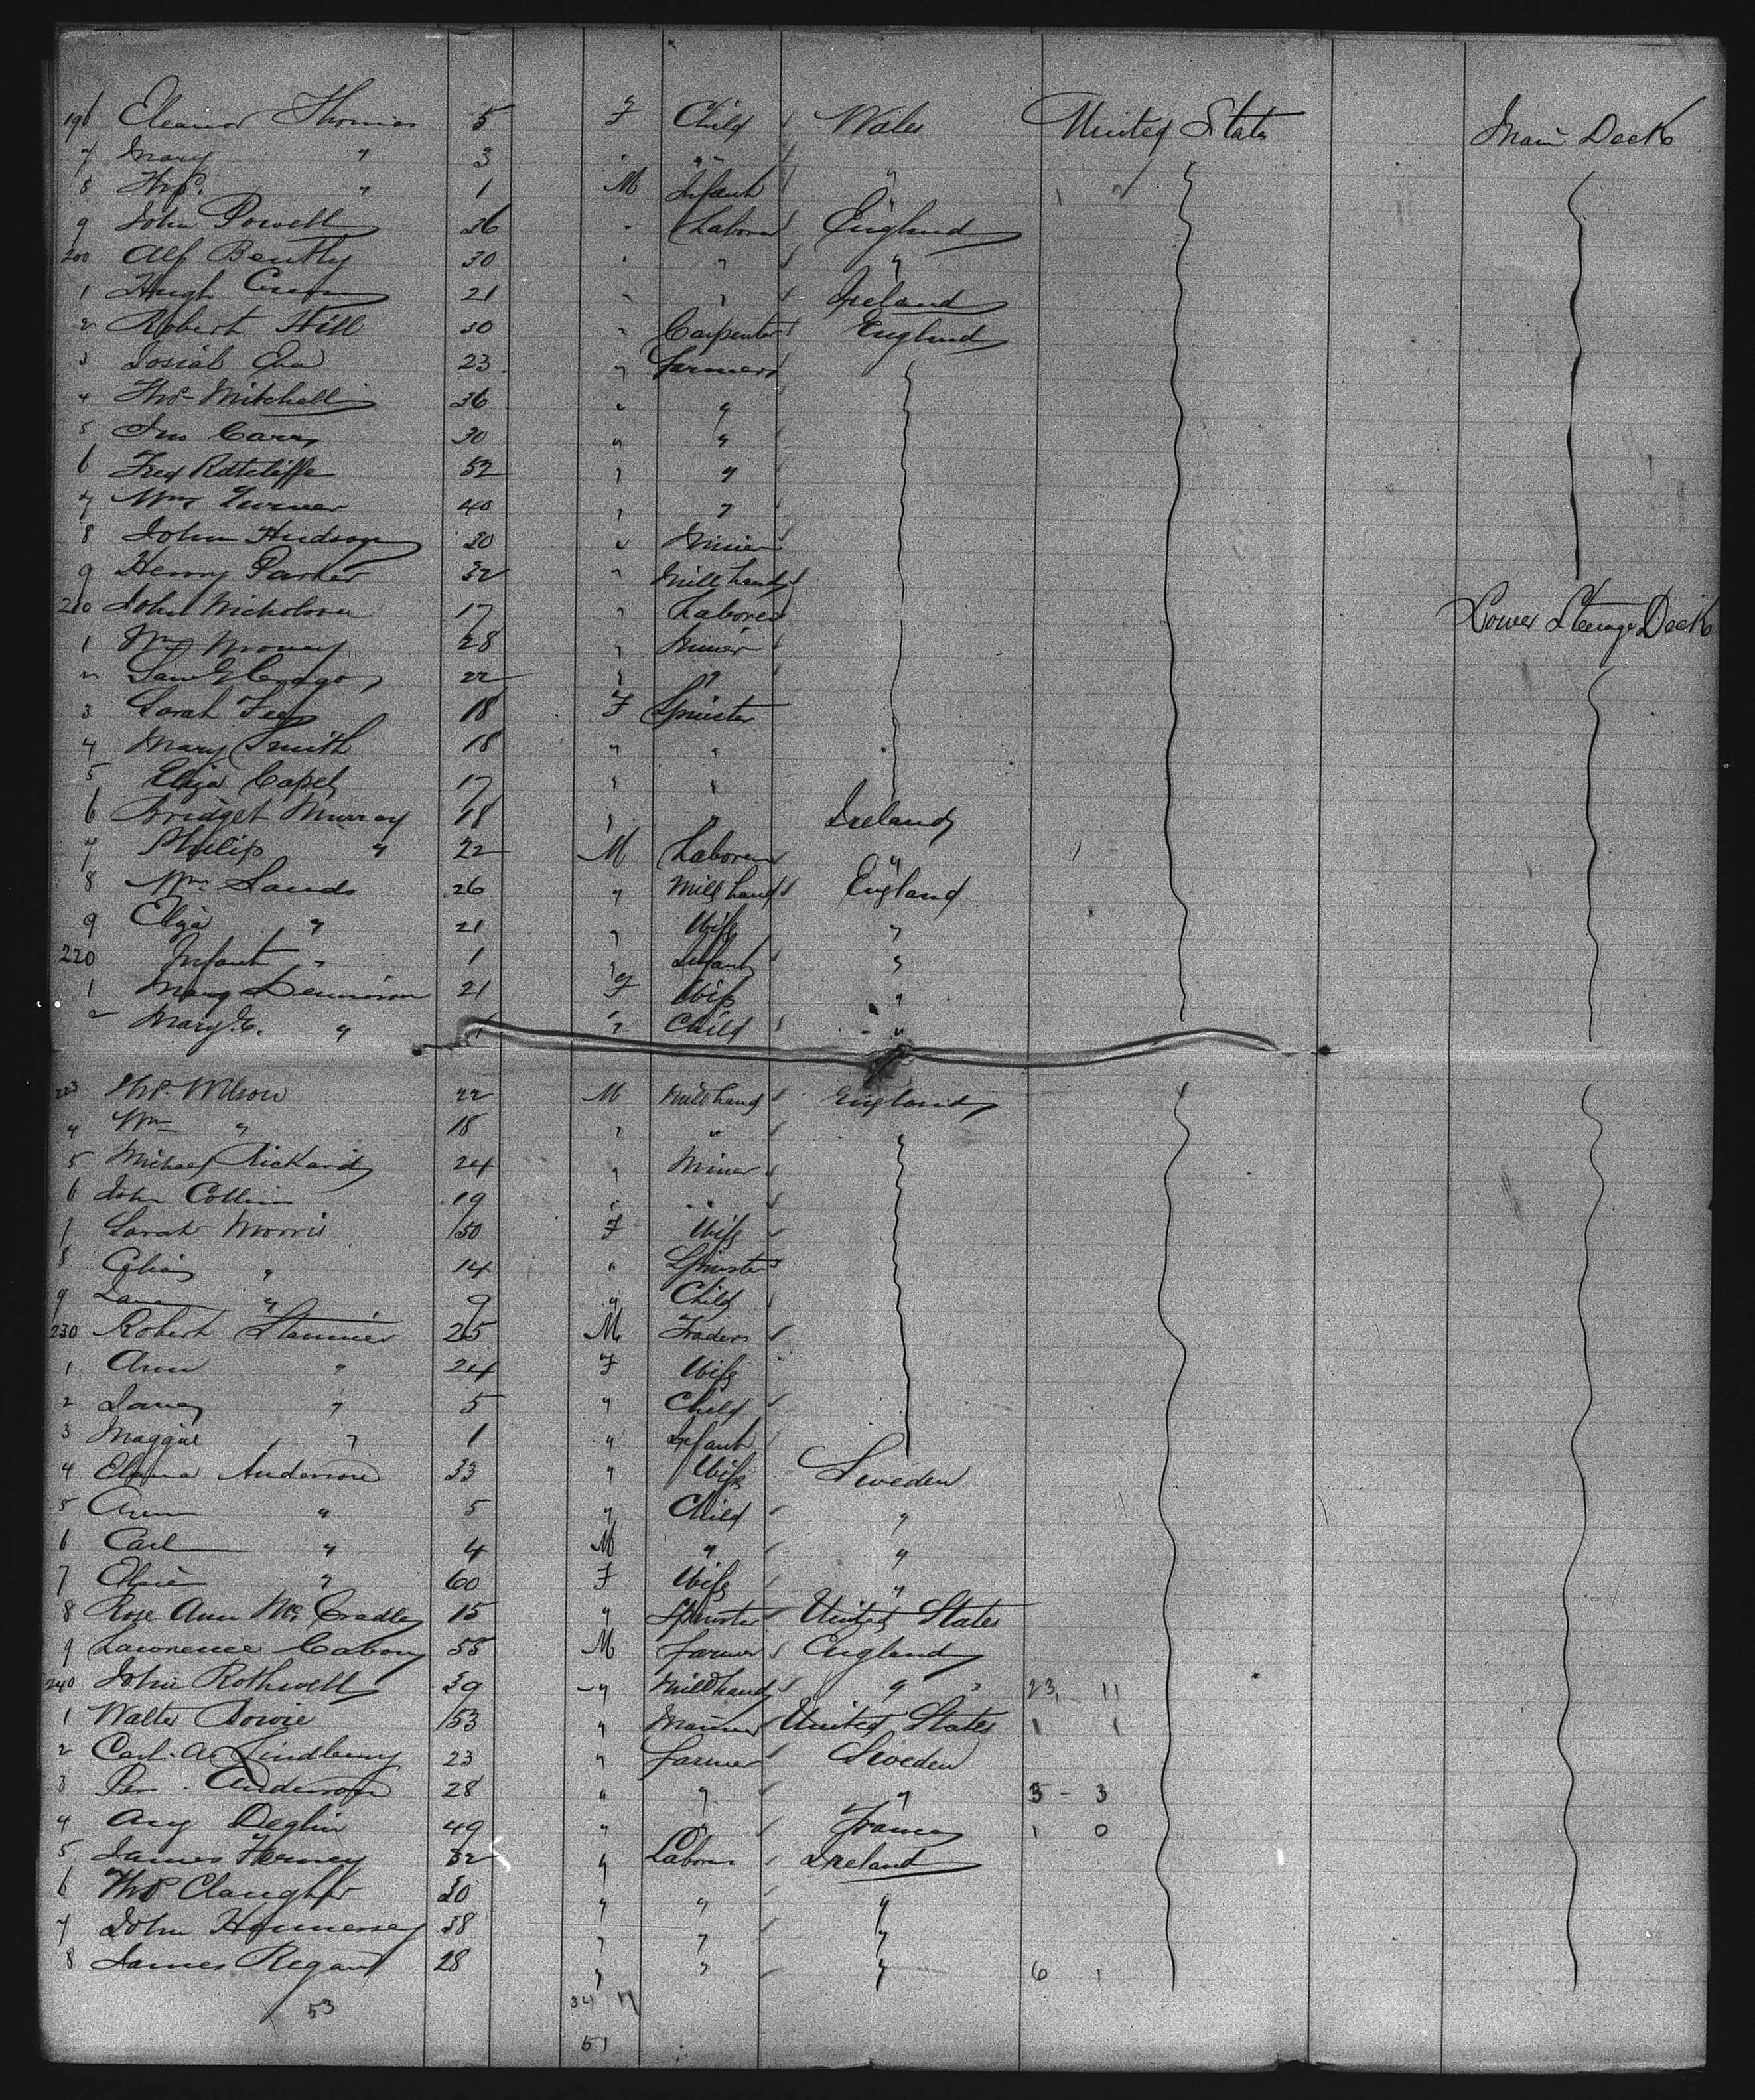 196 Eleanor Thomas 5 F Child Wales United States Main Deck
7 Mary " 3 " " "
8 Thos. " 1 M Infant "
9 John Powell 36 " Laborer England
200 Alf Bently 30 " " "
1 Hugh 21 " " Ireland
2 Robert Hill 30 " Carpenter England
3 Josiah 23 " Farmer
4 Thos Mitchell 36 " "
5 Jno Carr 30 " "
6 Fred Ratcliffe 52 " "
7 Wm Turner 40 " "
8 John Hudson 30 " Miner
9 Henry Parker 32 " Mill hand
210 John Nicholson 17 " Laborer Lower Steerage Deck
1 Wm 28 " Miner
2 22 " "
3 Sarah 18 F Spinster
4 Mary Smith 18 " "
5 Eliza 17 " "
6 Bridget Murray 18 " " Ireland
7 Philip " 22 M Laborer "
8 Wm Sands 26 " Mill hand England
9 Eliza " 21 " Wife "
220 Infant " 1 " Infant "
1 Mary Dennison 21 F Wife "
2 Mary " " Child "
223 Thos. Wilson 22 M Mill hand England
4 Wm " 18 " "
5 Michael Rickard 24 " Miner
6 John Collins 19 " "
7 Sarah Morris 50 F Wife
8 " 14 " Spinster
9 " 9 " Child
230 Robert Stanier 25 M Trader
1 Ann " 24 F Wife
2 " 5 " Child
3 Maggie " 1 " Infant
4 Anderson 33 " Wife Sweden
5 " 5 " Child "
6 Carl " 4 M " "
7 " 60 F Wife "
8 Rose Ann Mc Cradley 15 " Spinster United States
9 Lawrence 55 M Farmer England
240 John Rothwell 39 " Mill hand " 23 11
1 Walter Bowie 53 " Mariner United States 1 1
2 Carl. A. 23 " Farmer Sweden
3 Anderson 28 " " " 3 - 3
4 Aug 49 " " France 1 0
5 James 32 " Laborer Ireland
6 Thos 30 " " "
7 John Hennessey 38 " " "
8 James Regan 28 " " " 6 1
53 34 17
51